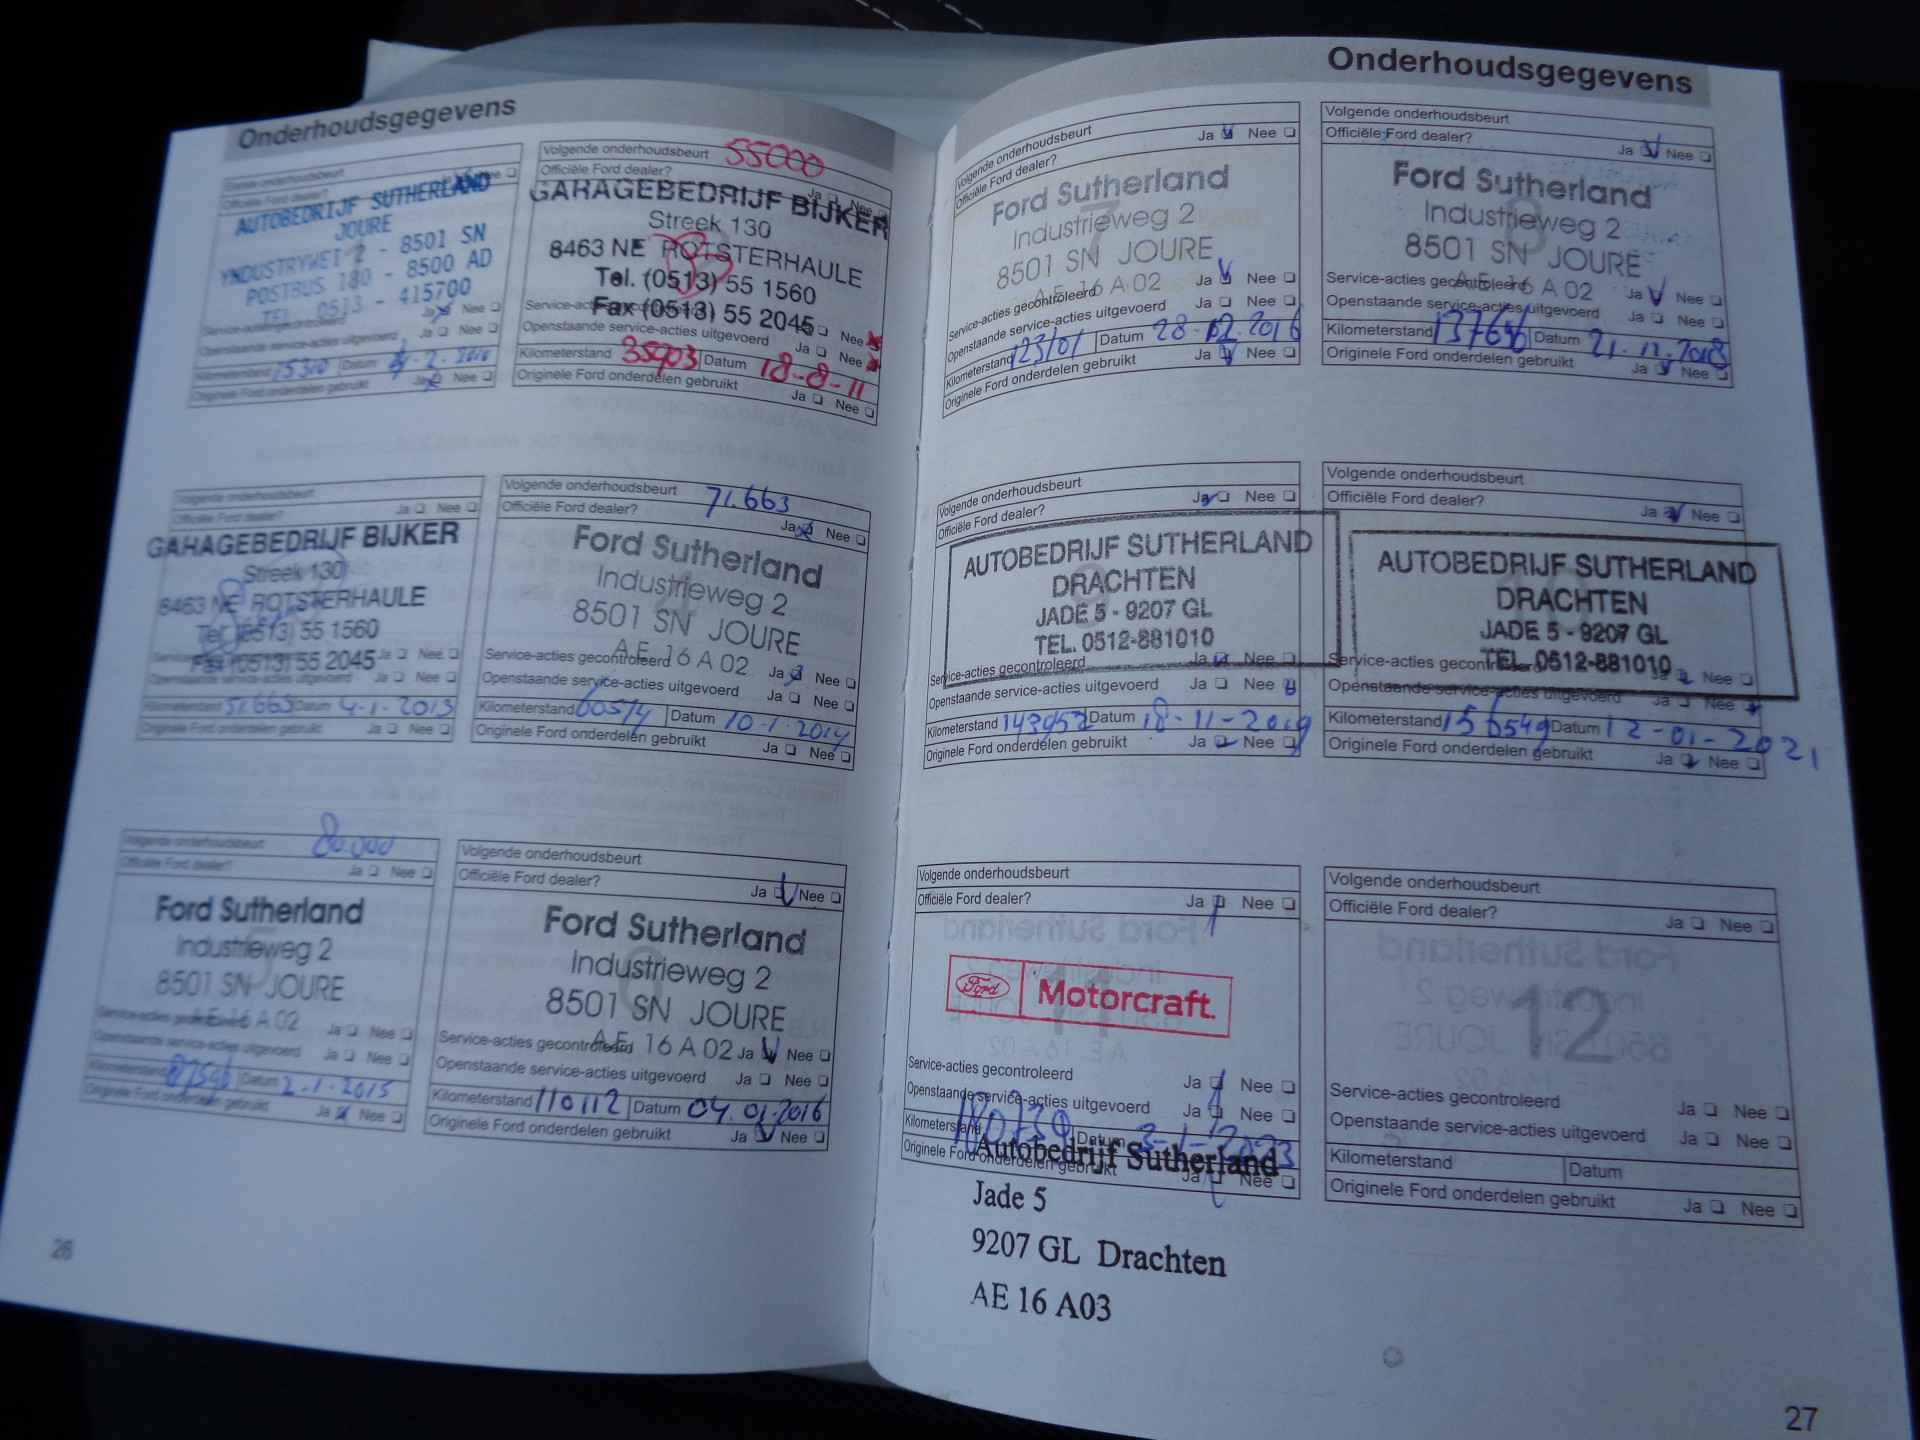 Onderhoudsgegevens
Officiële Ford dealer?
Nee
AUTOBEDRIJF SUTHERLAND
JOURE
YNDUSTRYWEI 2 - 8501 SN
POSTBUS 180 - 8500 AD
TEL. 0513 - 415700
Ja Nee
Openstaande service-acties uitgevoerd Ja Nee
Kilometerstand 15310 Datum
Originele Ford onderdelen gebruikt Ja Nee
Volgende onderhoudsbeurt 55000
Officiële Ford dealer?
Ja Nee
GARAGEBEDRIJF BIJKER
Streek 130
8463 NE ROTSTERHAULE
Tel. (0513) 55 1560
Fax (0513) 55 2045
Nee
Openstaande service-acties uitgevoerd Ja Nee
Kilometerstand 35903 Datum 18-8-11
Originele Ford onderdelen gebruikt Ja Nee
Volgende onderhoudsbeurt
Officiële Ford dealer? Ja Nee
GARAGEBEDRIJF BIJKER
Streek 130
8463 NE ROTSTERHAULE
Tel. (0513) 55 1560
Fax (0513) 55 2045 Ja Nee
Openstaande service-acties uitgevoerd Ja Nee
Kilometerstand 51.663 Datum 4-1-2013
Originele Ford onderdelen gebruikt Ja Nee
Volgende onderhoudsbeurt 71.663
Officiële Ford dealer? Ja Nee
Ford Sutherland
Industrieweg 2
8501 SN JOURE
AE 16 A 02
Service-acties gecontroleerd Ja Nee
Openstaande service-acties uitgevoerd Ja Nee
Kilometerstand 60514 Datum 10-1-2014
Originele Ford onderdelen gebruikt Ja Nee
Volgende onderhoudsbeurt 80.000
Officiële Ford dealer? Ja Nee
Ford Sutherland
Industrieweg 2
8501 SN JOURE
AE 16 A 02
Service-acties gecontroleerd Ja Nee
Openstaande service-acties uitgevoerd Ja Nee
Kilometerstand 87596 Datum 2-1-2015
Originele Ford onderdelen gebruikt Ja Nee
Volgende onderhoudsbeurt
Officiële Ford dealer? Ja Nee
Ford Sutherland
Industrieweg 2
8501 SN JOURE
AE 16 A 02
Service-acties gecontroleerd Ja Nee
Openstaande service-acties uitgevoerd Ja Nee
Kilometerstand 110112 Datum 04.01.2016
Originele Ford onderdelen gebruikt Ja Nee
26
Onderhoudsgegevens
Volgende onderhoudsbeurt
Officiële Ford dealer? Ja Nee
Ford Sutherland
7
Industrieweg 2
8501 SN JOURE
AE 16 A 02
Service-acties gecontroleerd Ja Nee
Openstaande service-acties uitgevoerd Ja Nee
Kilometerstand 123101 Datum 28-12.2016
Originele Ford onderdelen gebruikt Ja Nee
Volgende onderhoudsbeurt
Officiële Ford dealer? Ja Nee
Ford Sutherland
8
Industrieweg 2
8501 SN JOURE
AE 16 A 02
Service-acties gecontroleerd Ja Nee
Openstaande service-acties uitgevoerd Ja Nee
Kilometerstand 137656 Datum 21.12.2018
Originele Ford onderdelen gebruikt Ja Nee
Volgende onderhoudsbeurt
Officiële Ford dealer? Ja Nee
AUTOBEDRIJF SUTHERLAND
DRACHTEN
9
JADE 5 - 9207 GL
TEL. 0512-881010
Service-acties gecontroleerd Ja Nee
Openstaande service-acties uitgevoerd Ja Nee
Kilometerstand 143952 Datum 18-11-2019
Originele Ford onderdelen gebruikt Ja Nee
Volgende onderhoudsbeurt
Officiële Ford dealer? Ja Nee
AUTOBEDRIJF SUTHERLAND
DRACHTEN
10
JADE 5 - 9207 GL
TEL. 0512-881010
Service-acties gecontroleerd Ja Nee
Openstaande service-acties uitgevoerd Ja Nee
Kilometerstand 156549 Datum 12-01-2021
Originele Ford onderdelen gebruikt Ja Nee
Volgende onderhoudsbeurt
Officiële Ford dealer? Ja Nee
Ford Motorcraft.
11
Service-acties gecontroleerd Ja Nee
Openstaande service-acties uitgevoerd Ja Nee
Kilometerstand 180730 Datum 3-1-2023
Originele Ford onderdelen gebruikt Ja Nee
Autobedrijf Sutherland
Jade 5
9207 GL Drachten
AE 16 A03
Volgende onderhoudsbeurt
Officiële Ford dealer? Ja Nee
12
Service-acties gecontroleerd Ja Nee
Openstaande service-acties uitgevoerd Ja Nee
Kilometerstand Datum
Originele Ford onderdelen gebruikt Ja Nee
27